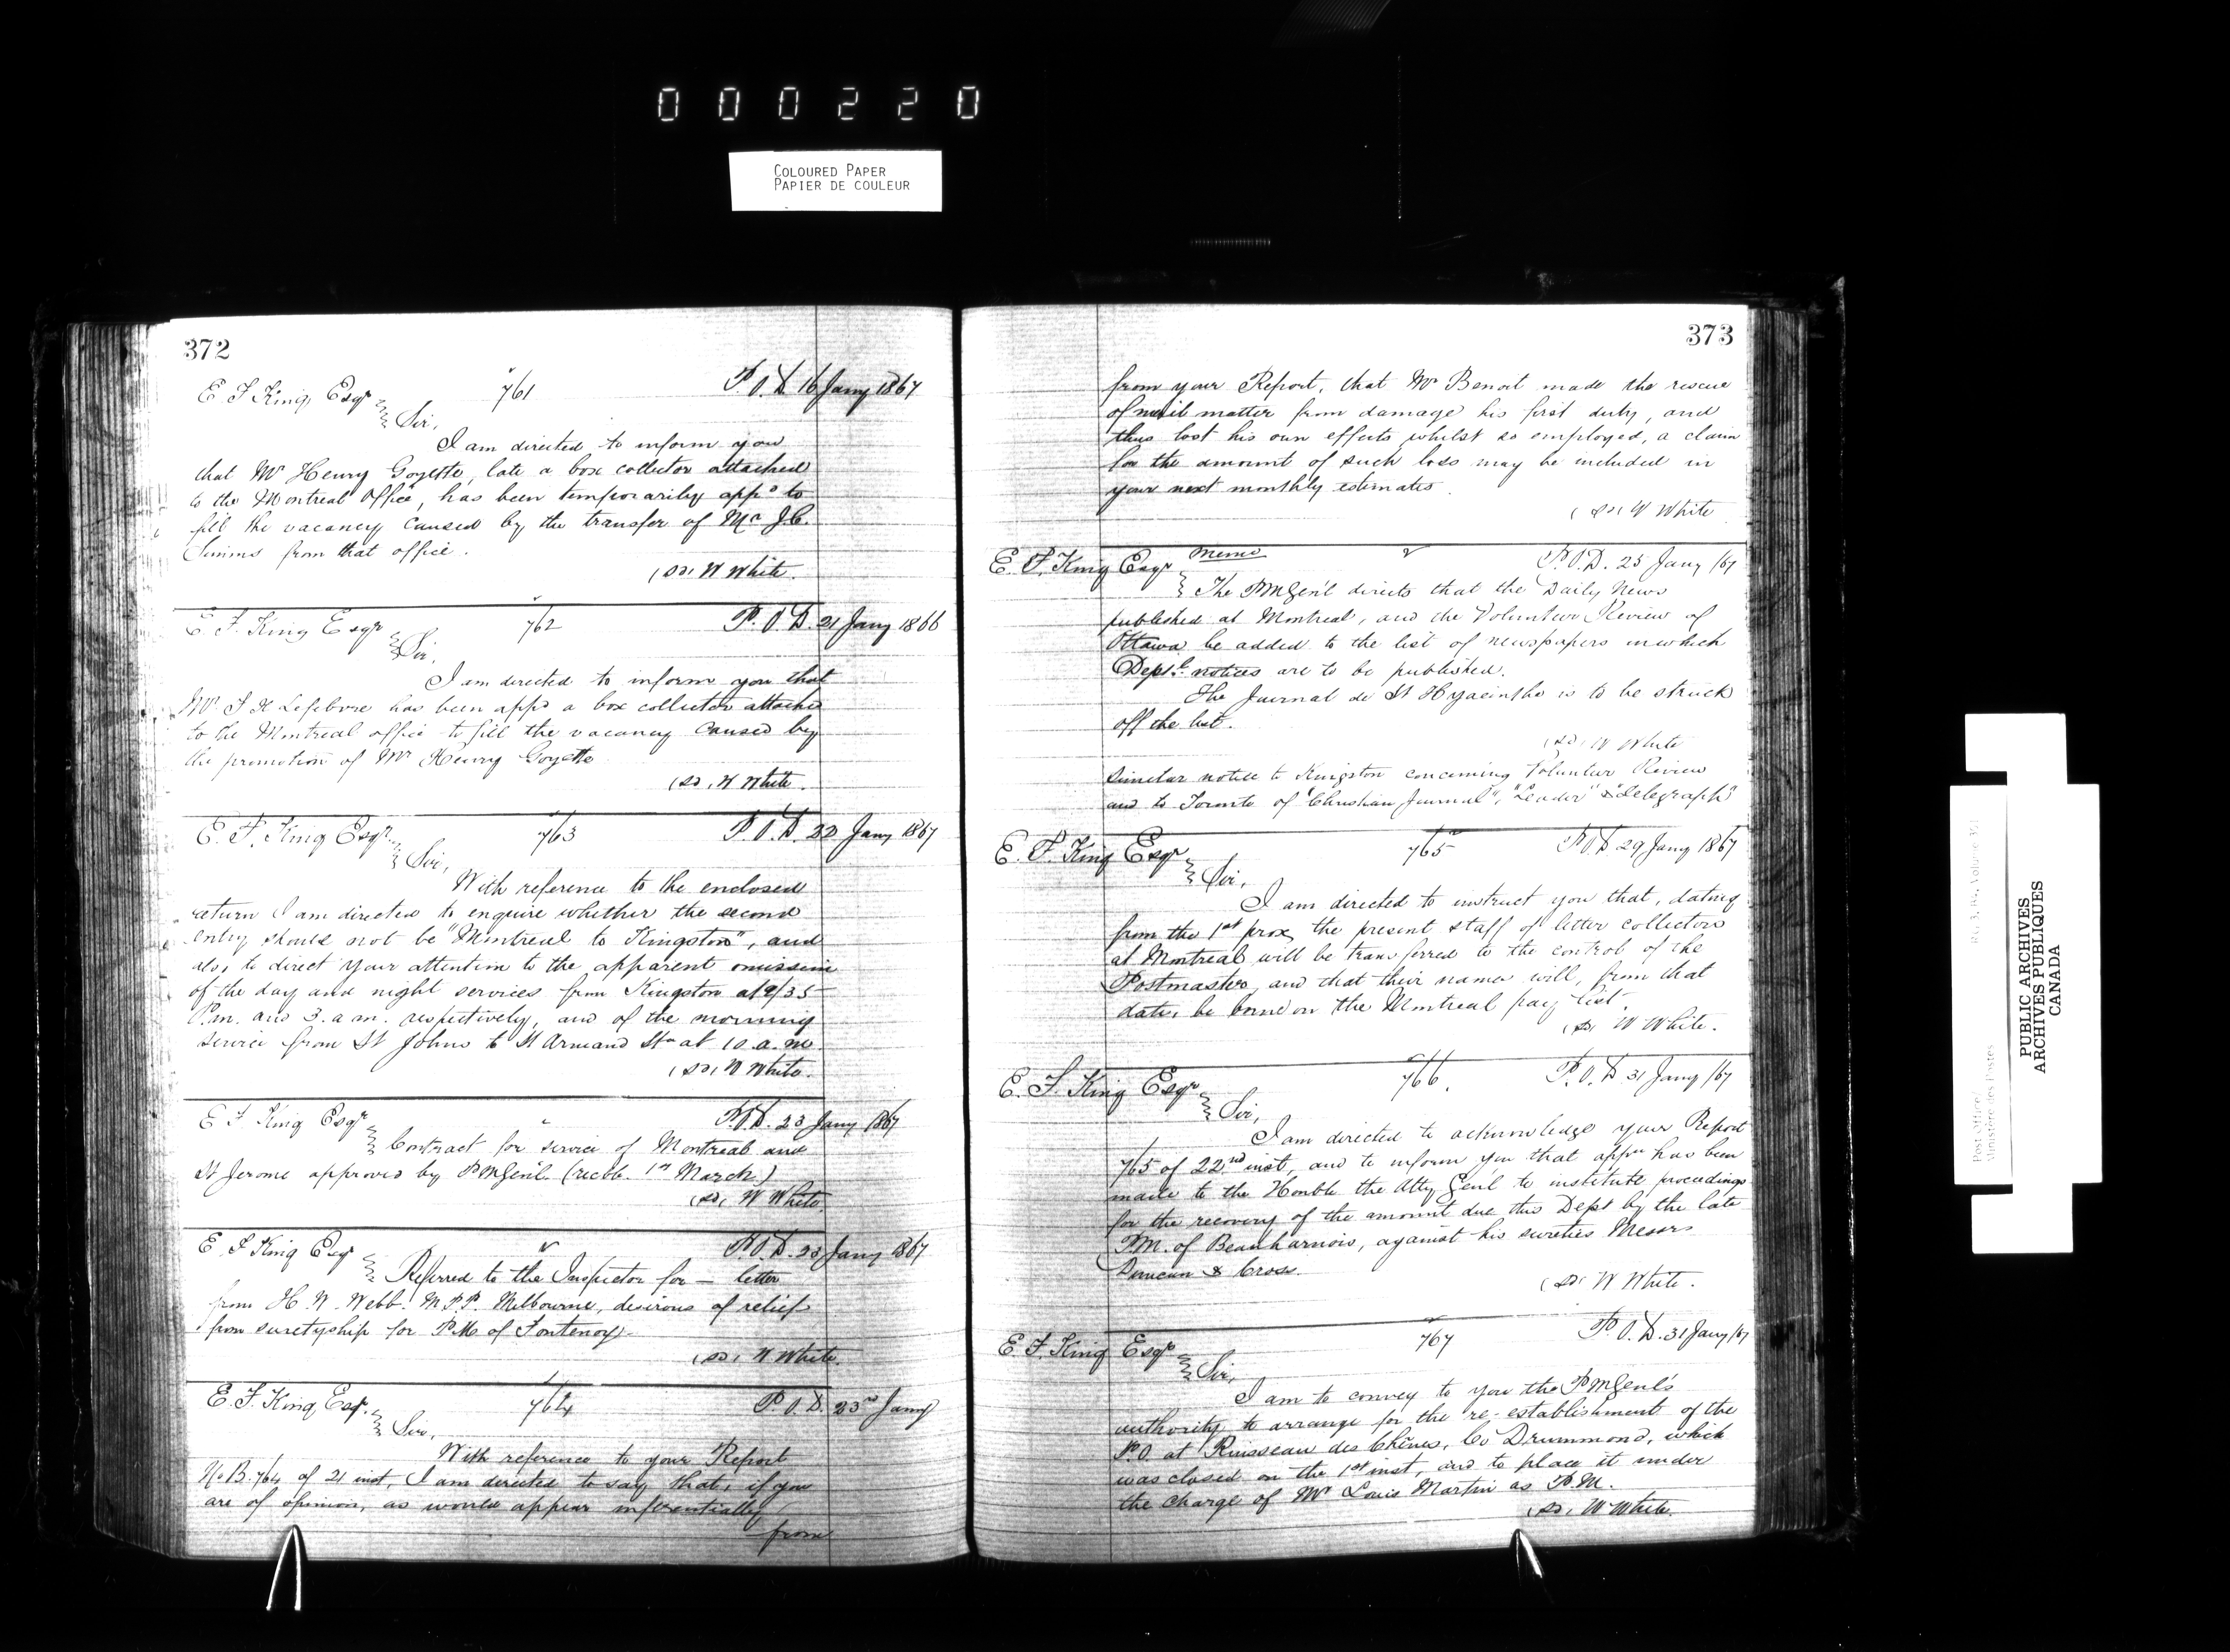 000220
COLOURED PAPER
PAPIER DE COULEUR
372
E F King, Esqr 761 P.O.D. 16 Jany 1867
Sir,
I am directed to inform you
that Mr Henry Goyette, late a box collector attached
to the Montreal Office, has been temporarily appd to
fill the vacancy caused by the transfer of Mr J.C.
Simms from that office.
(sd) W White.
E. F. King Esqr 762 P.O.D. 21 Jany 1866
Sir,
I am directed to inform you that
Mr. J H Lefebvre has been appd a box collector attached
to the Montreal office to fill the vacancy caused by
the promotion of Mr Henry Goyette
(sd) W White.
E. F. King Esqr. 763 P.O.D. 22 Jany 1867
Sir,
With reference to the enclosed
return I am directed to enquire whether the second
entry should not be "Montreal to Kingston", and
also to direct your attention to the apparent omission
of the day and night services from Kingston at 2/35
P.m. and 3. a m. respectively, and of the morning
service from St Johns to St Armand Stn at 10. a. m.
(sd) W White.
E F King Esqr P.O.D. 23 Jany 1867
Contract for service of Montreal and
St Jerome approved by PMGenl. (recble 1st March)
(sd) W White
E F King Esqr P.O.D. 23 Jany 1867
Referred to the Inspector for — letter
from H. N. Webb. M.P.P. Melbourne, desirous of relief
from suretyship for P.M. of Fontenoy.
(sd) W White.
E. F. King Esqr. 764 P.O.D. 23rd Jany
Sir,
With reference to your Report
No B.764 of 21 inst, I am directed to say that, if you
are of opinion, as would appear inferentially
from
373
from your Report, that Mr Benoit made the rescue
of mail matter from damage his first duty, and
thus lost his own effects whilst so employed, a claim
for the amount of such loss may be included in
your next monthly estimates.
(sd) W White
E. F. King Esqr Memo P.O.D. 25 Jany /67
The PMGen'l directs that the Daily News
published at Montreal, and the Volunteer Review of
Ottawa be added to the list of newspapers in which
Deptl. notices are to be published.
The Journal de St Hyacinthe is to be struck
off the list.
(sd) W White
Similar notice to Kingston concerning Volunteer Review
and to Toronto of "Christian Journal", "Leader" & "Telegraph"
E. F. King Esqr 765 P.O.D 29 Jany 1867
Sir,
I am directed to instruct you that, dating
from the 1st prox, the present staff of letter collectors
at Montreal will be transferred to the control of the
Postmaster, and that their names will, from that
date, be borne on the Montreal pay list.
(sd) W White.
E. F. King Esqr 766. P.O.D 31 Jany /67
Sir,
I am directed to acknowledge your Report
765 of 22nd inst, and to inform you that appn has been
made to the Honble the Atty Gen'l to institute proceedings
for the recovery of the amount due this Dept by the late
P.M. of Beauharnois, against his sureties Messrs
Duncan & Cross.
(sd) W White.
E. F. King Esqr 767 P.O.D. 31 Jany /67
Sir,
I am to convey to you the PMGenl's
authority to arrange for the re-establishment of the
P.O. at Ruisseau des Chênes, Co Drummond, which
was closed on the 1st inst, and to place it under
the charge of Mr Louis Martin as P.M.
(sd) W White.
Post Office
Ministère des Postes
PUBLIC ARCHIVES
ARCHIVES PUBLIQUES
CANADA